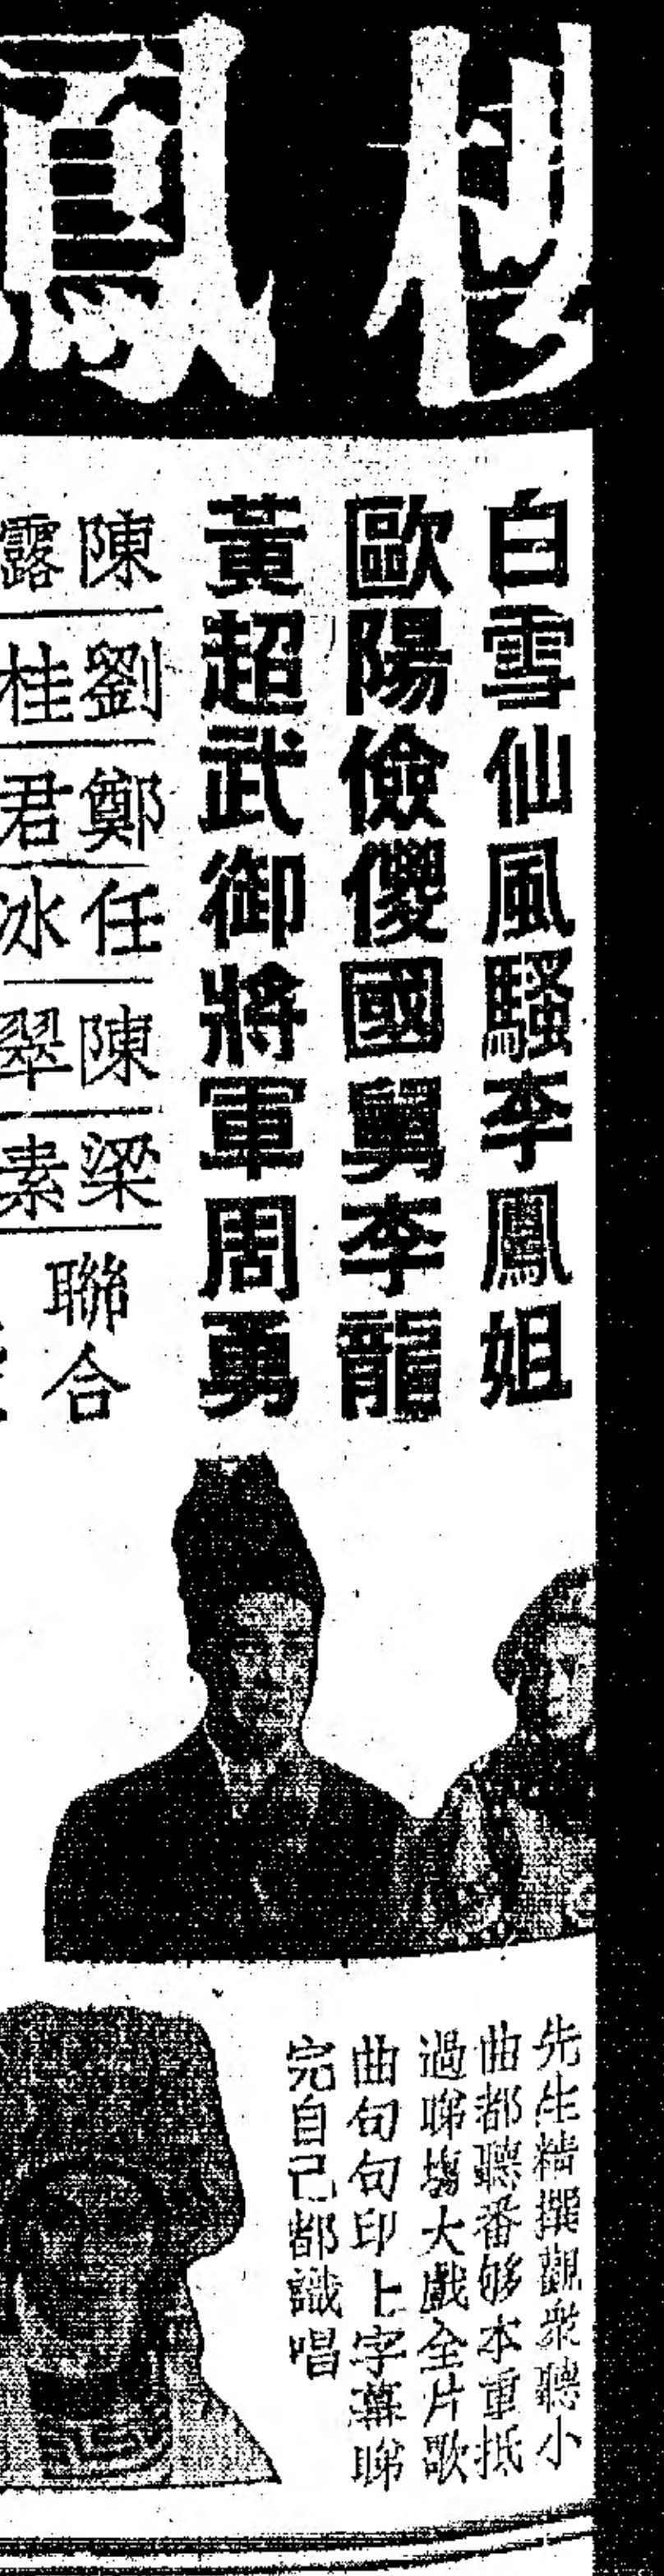 鳳
白雪仙風騷李鳳姐
歐陽儉傻國舅李龍
黃超武御將軍周勇
陳露
劉桂
鄭君
任冰
陳翠
梁素
聯合
先生精撰觀衆聽小
曲都聽番够本重抵
過睇塲大戲全片歌
曲句句印上字幕睇
完自己都識唱